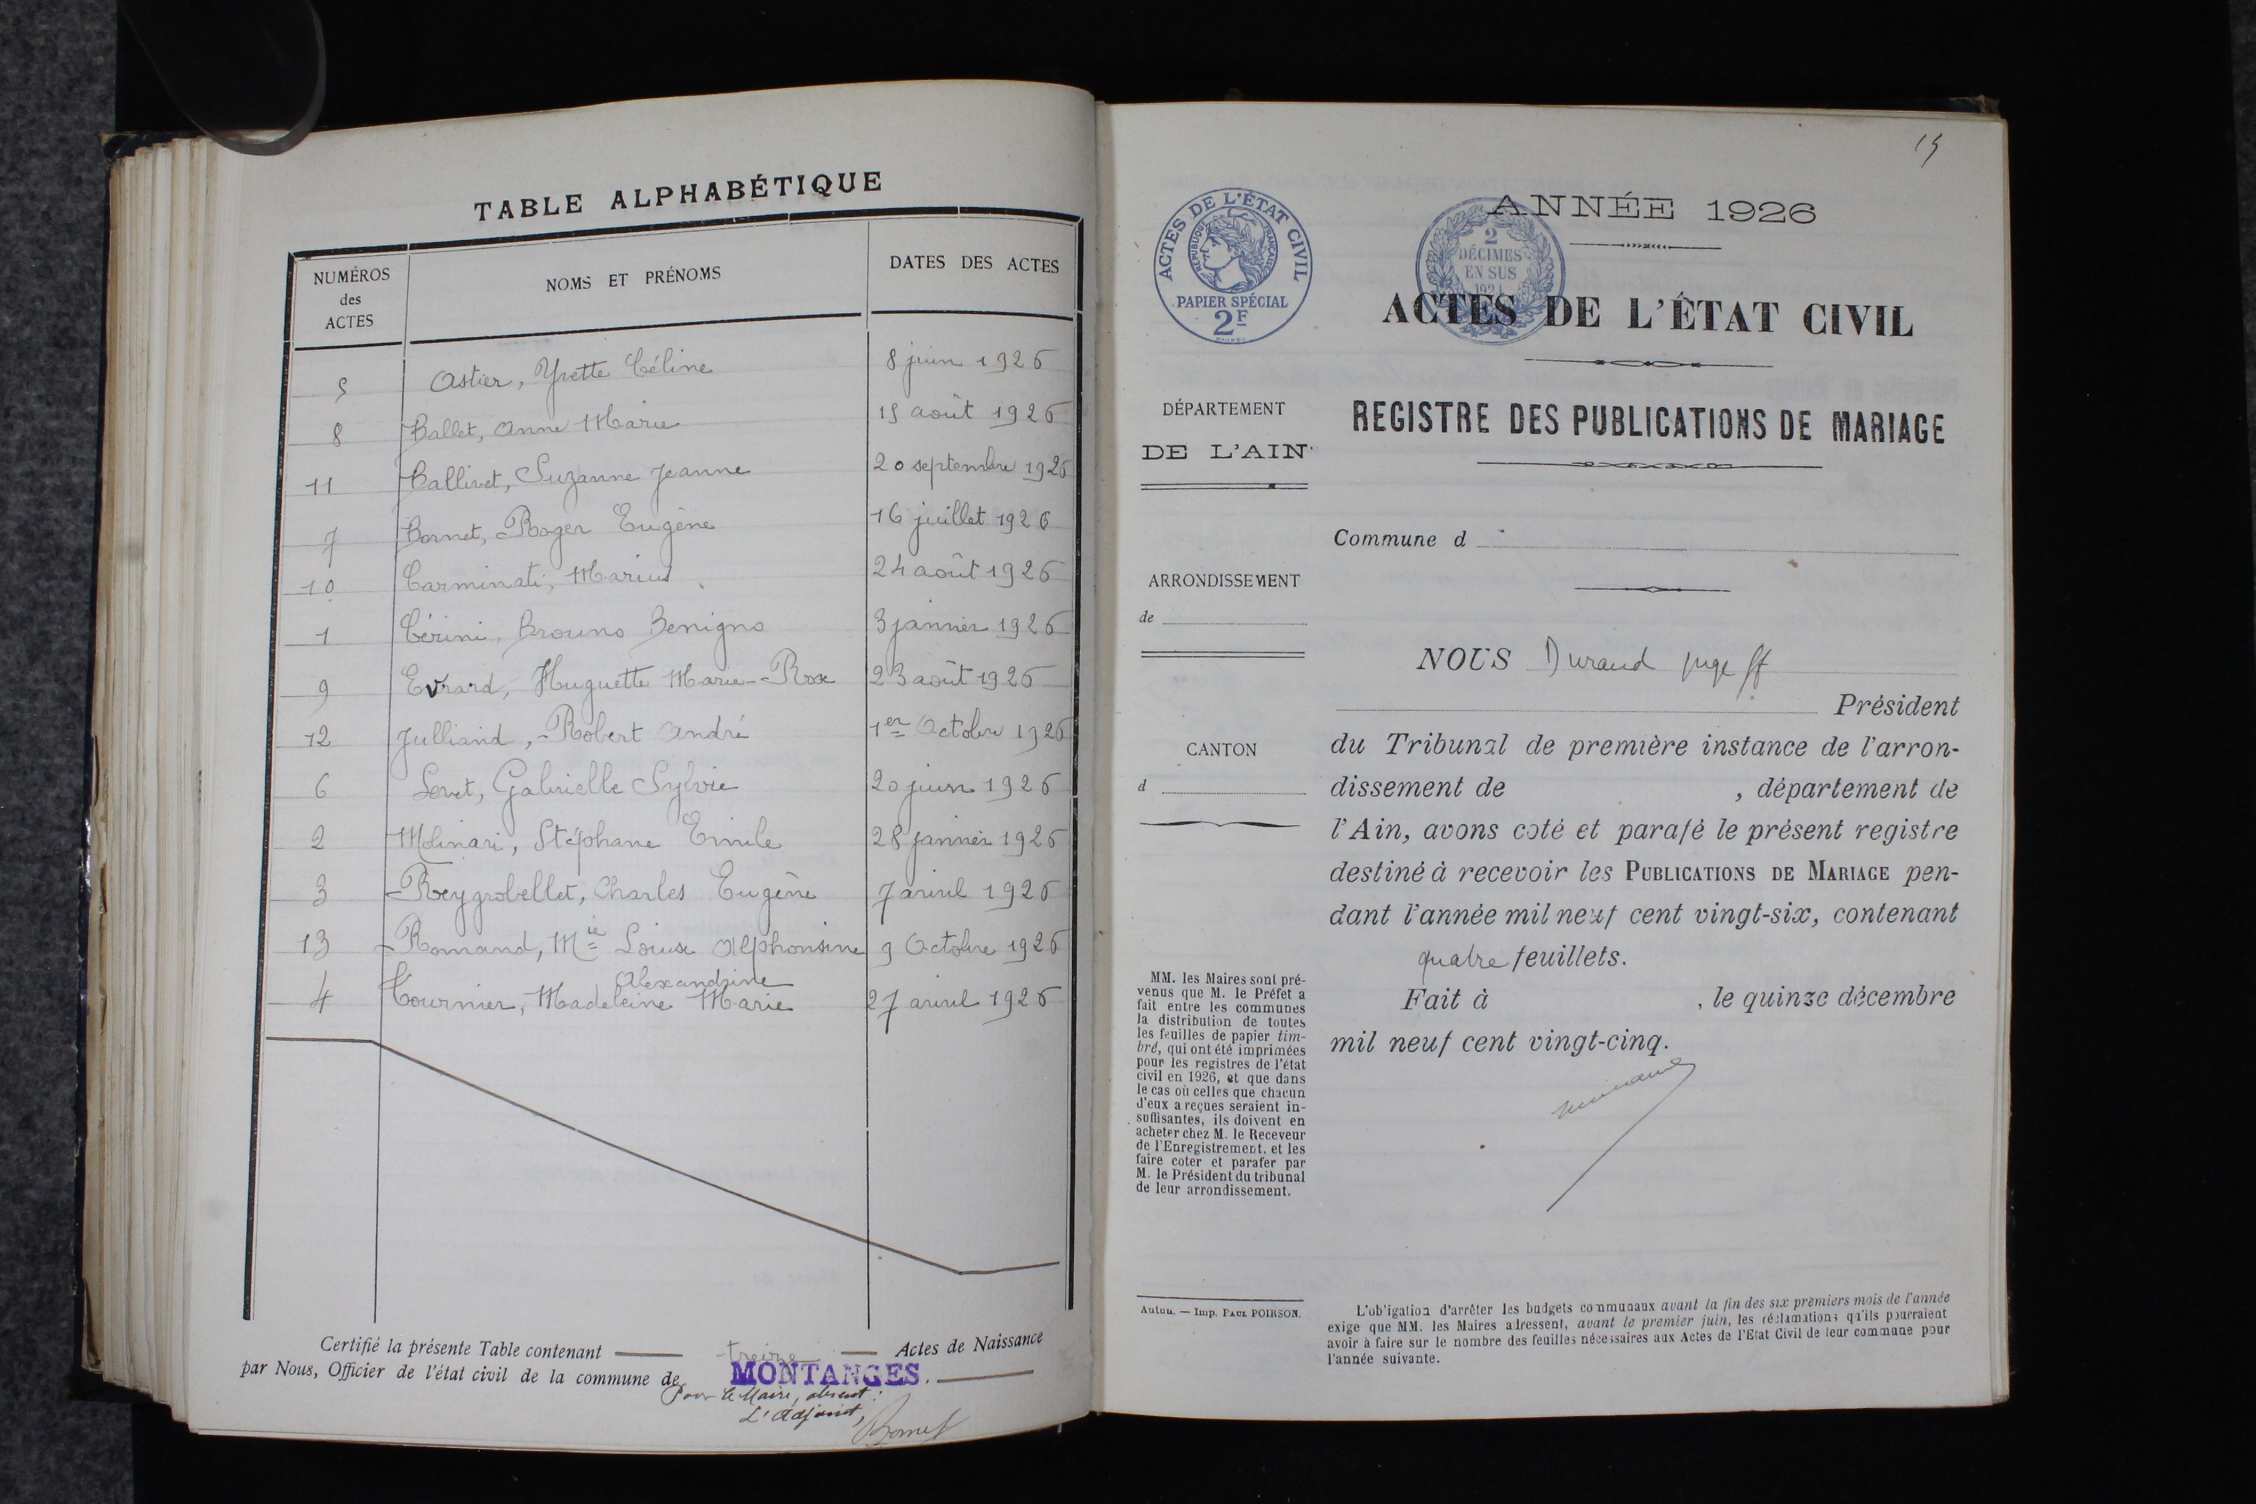 TABLE ALPHABÉTIQUE
NUMÉROS des ACTES NOMS ET PRÉNOMS DATES DES ACTES
5 Astier, Yvette Céline 8 juin 1926
8 Ballet, Anne Marie 15 août 1926
11 Ballivet, Suzanne Jeanne 20 septembre 1926
7 Bornet, Roger Eugène 16 juillet 1926
10 Carminati, Marius 24 août 1926
1 Cérini, Brouno Benigno 3 janvier 1926
9 Evrard, Huguette Marie-Rose 23 août 1926
12 Julliand, Robert André 1er Octobre 1926
6 Levet, Gabrielle Sylvie 20 juin 1926
2 Molinari, Stéphane Emile 28 janvier 1926
3 Reygrobellet, Charles Eugène 7 avril 1926
13 Romand, Mie Louise Alphonsine 9 Octobre 1926
Alexandrine
4 Tournier, Madeleine Marie 27 avril 1926
Certifié la présente Table contenant treize Actes de Naissance
par Nous, Officier de l'état civil de la commune de MONTANGES.
Pour le Maire, absent :
L'Adjoint,
Bornet
15
ANNÉE 1926
ACTES DE L'ÉTAT CIVIL
RÉPUBLIQUE FRANÇAISE
PAPIER SPÉCIAL
2F
2
DÉCIMES
EN SUS
1924
ACTES DE L'ÉTAT CIVIL
REGISTRE DES PUBLICATIONS DE MARIAGE
DÉPARTEMENT
DE L'AIN
ARRONDISSEMENT
de
CANTON
d
MM. les Maires sont pré-
venus que M. le Préfet a
fait entre les communes
la distribution de toutes
les feuilles de papier tim-
bré, qui ont été imprimées
pour les registres de l'état
civil en 1926, et que dans
le cas où celles que chacun
d'eux a reçues seraient in-
suffisantes, ils doivent en
acheter chez M. le Receveur
de l'Enregistrement, et les
faire coter et parafer par
M. le Président du tribunal
de leur arrondissement.
Autun. — Imp. PAUL POIRSON.
Commune d
NOUS Durand juge ff
Président
du Tribunal de première instance de l'arron-
dissement de , département de
l'Ain, avons coté et parafé le présent registre
destiné à recevoir les PUBLICATIONS DE MARIAGE pen-
dant l'année mil neuf cent vingt-six, contenant
quatre feuillets.
Fait à , le quinze décembre
mil neuf cent vingt-cinq.
L'obligation d'arrêter les budgets communaux avant la fin des six premiers mois de l'année
exige que MM. les Maires adressent, avant le premier juin, les réclamations qu'ils pourraient
avoir à faire sur le nombre des feuilles nécessaires aux Actes de l'Etat Civil de leur commune pour
l'année suivante.